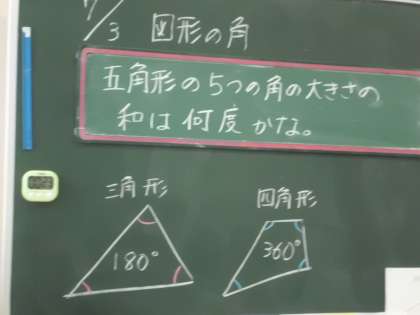 7/3 図形の角
五角形の5つの角の大きさの
和は何度かな。
三角形
四角形
180°
360°